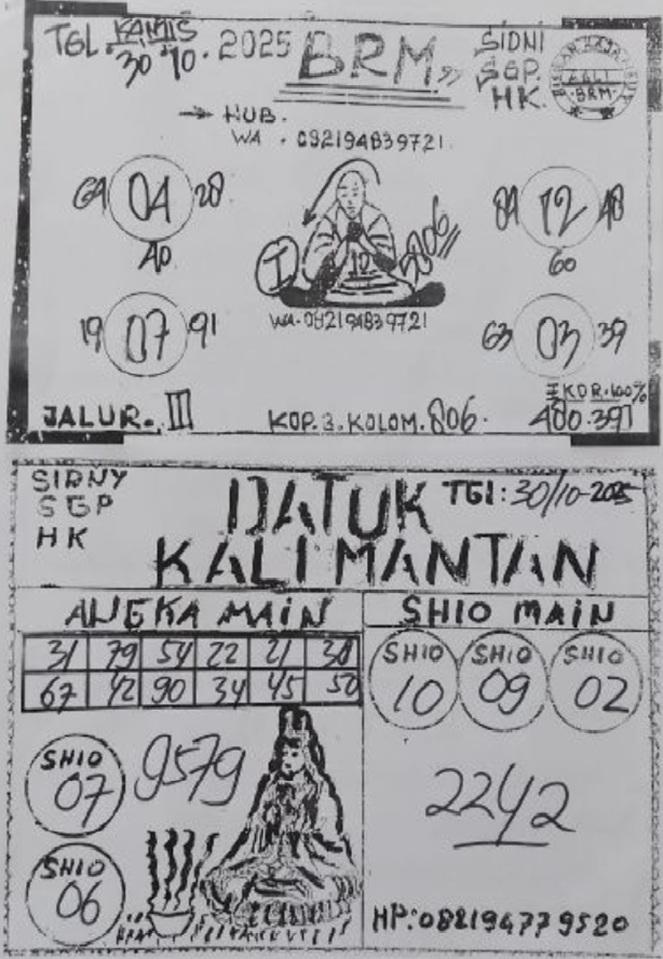 TGL. KAMIS
30.10.2025
BRM
SIDNI
SGP.
HK.
ASLI
BRM
→ HUB.
WA. 082194839721.
64 04 28
40
84 12 48
60
I
10
5806
WA-082194839721
19 07 91
63 03 39
JALUR. III
KOP. 3. KOLOM. 806.
EKOR. 100%
480.397
SIDNY
SGP
HK
DATUK
KALIMANTAN
TGl: 30/10-2025
ANGKA MAIN
31 79 54 22 21 38
67 42 90 34 45 50
SHIO MAIN
SHIO 10
SHIO 09
SHIO 02
SHIO 07
9579
SHIO 06
2242
HP: 082194779520